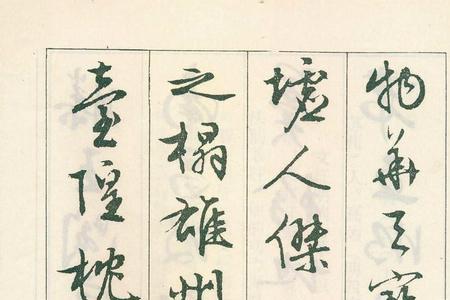 物華天寶
墟人傑
之榻雄州
臺隍枕